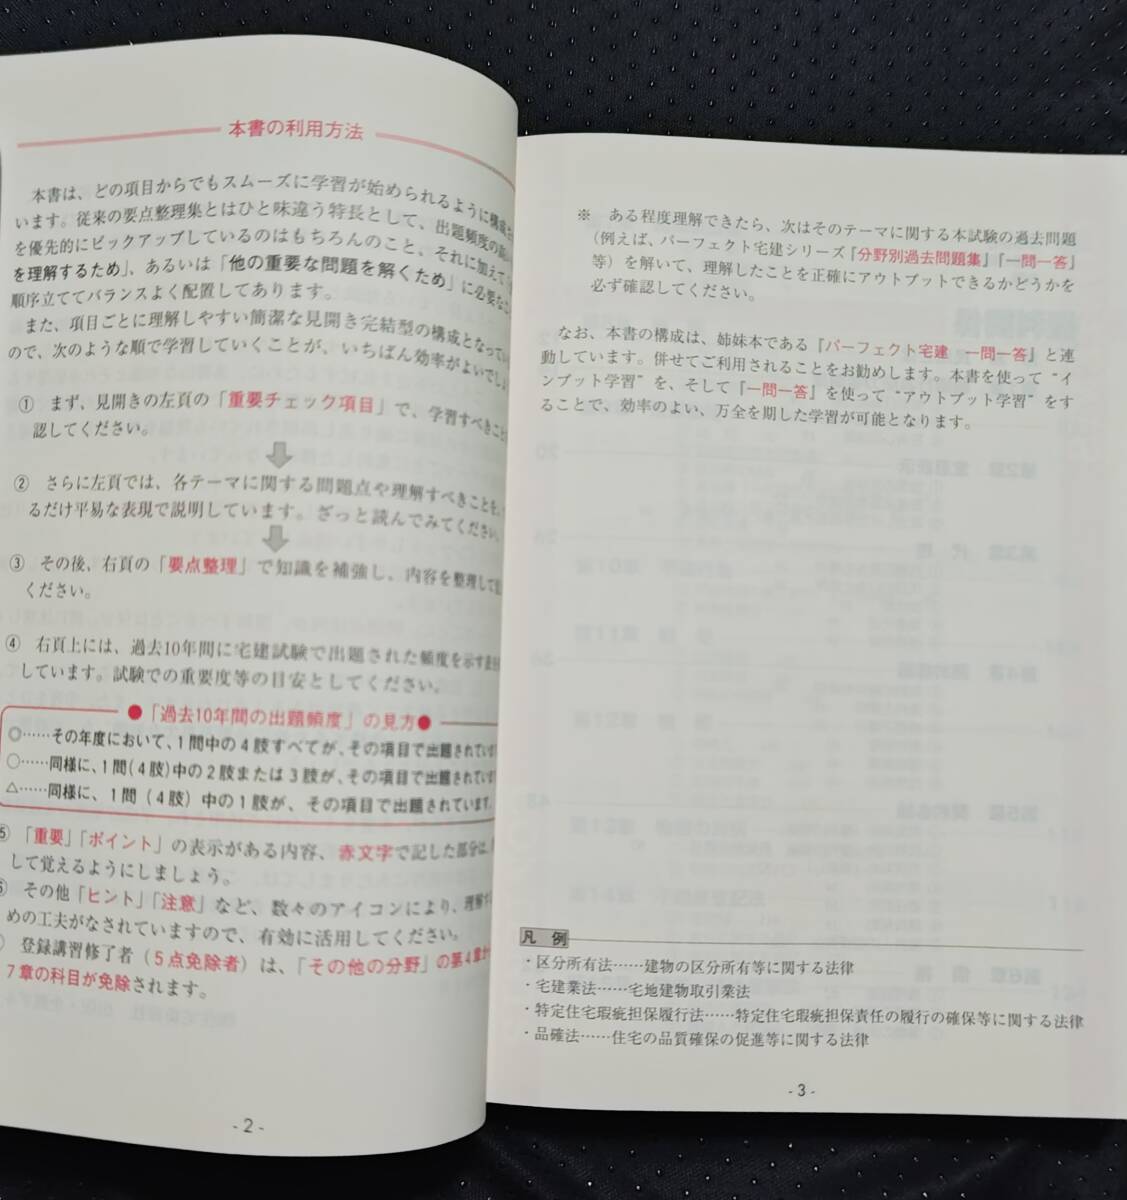 本書の利用方法
本書は、どの項目からでもスムーズに学習が始められるように構成さ
います。従来の要点整理集とはひと味違う特長として、出題頻度の
を優先的にピックアップしているのはもちろんのこと、それに加えて
を理解するため」、あるいは「他の重要な問題を解くため」に必要なこ
順序立ててバランスよく配置してあります。
また、項目ごとに理解しやすい簡潔な見開き完結型の構成となってい
ので、次のような順で学習していくことが、いちばん効率がよいでしょ
① まず、見開きの左頁の「重要チェック項目」で、学習すべきこと
認してください。
② さらに左頁では、各テーマに関する問題点や理解すべきことを、
るだけ平易な表現で説明しています。ざっと読んでみてください。
③ その後、右頁の「要点整理」で知識を補強し、内容を整理して
ください。
④ 右頁上には、過去10年間に宅建試験で出題された頻度を示す
しています。試験での重要度等の目安としてください。
●「過去10年間の出題頻度」の見方●
◎……その年度において、1問中の4肢すべてが、その項目で出題されています
○……同様に、1問(4肢)中の2肢または3肢が、その項目で出題されています
△……同様に、1問(4肢)中の1肢が、その項目で出題されています。
⑤ 「重要」「ポイント」の表示がある内容、赤文字で記した部分は、
して覚えるようにしましょう。
その他「ヒント」「注意」など、数々のアイコンにより、理解
めの工夫がなされていますので、有効に活用してください。
登録講習修了者(5点免除者)は、「その他の分野」の第4章か
7章の科目が免除されます。
- 2 -
※ ある程度理解できたら、次はそのテーマに関する本試験の過去問題
(例えば、パーフェクト宅建シリーズ『分野別過去問題集』『一問一答』
等)を解いて、理解したことを正確にアウトプットできるかどうかを
必ず確認してください。
なお、本書の構成は、姉妹本である『パーフェクト宅建 一問一答』と連
動しています。併せてご利用されることをお勧めします。本書を使って“イ
ンプット学習”を、そして『一問一答』を使って“アウトプット学習”をす
ることで、効率のよい、万全を期した学習が可能となります。
凡 例
・区分所有法……建物の区分所有等に関する法律
・宅建業法……宅地建物取引業法
・特定住宅瑕疵担保履行法……特定住宅瑕疵担保責任の履行の確保等に関する法律
・品確法……住宅の品質確保の促進等に関する法律
- 3 -